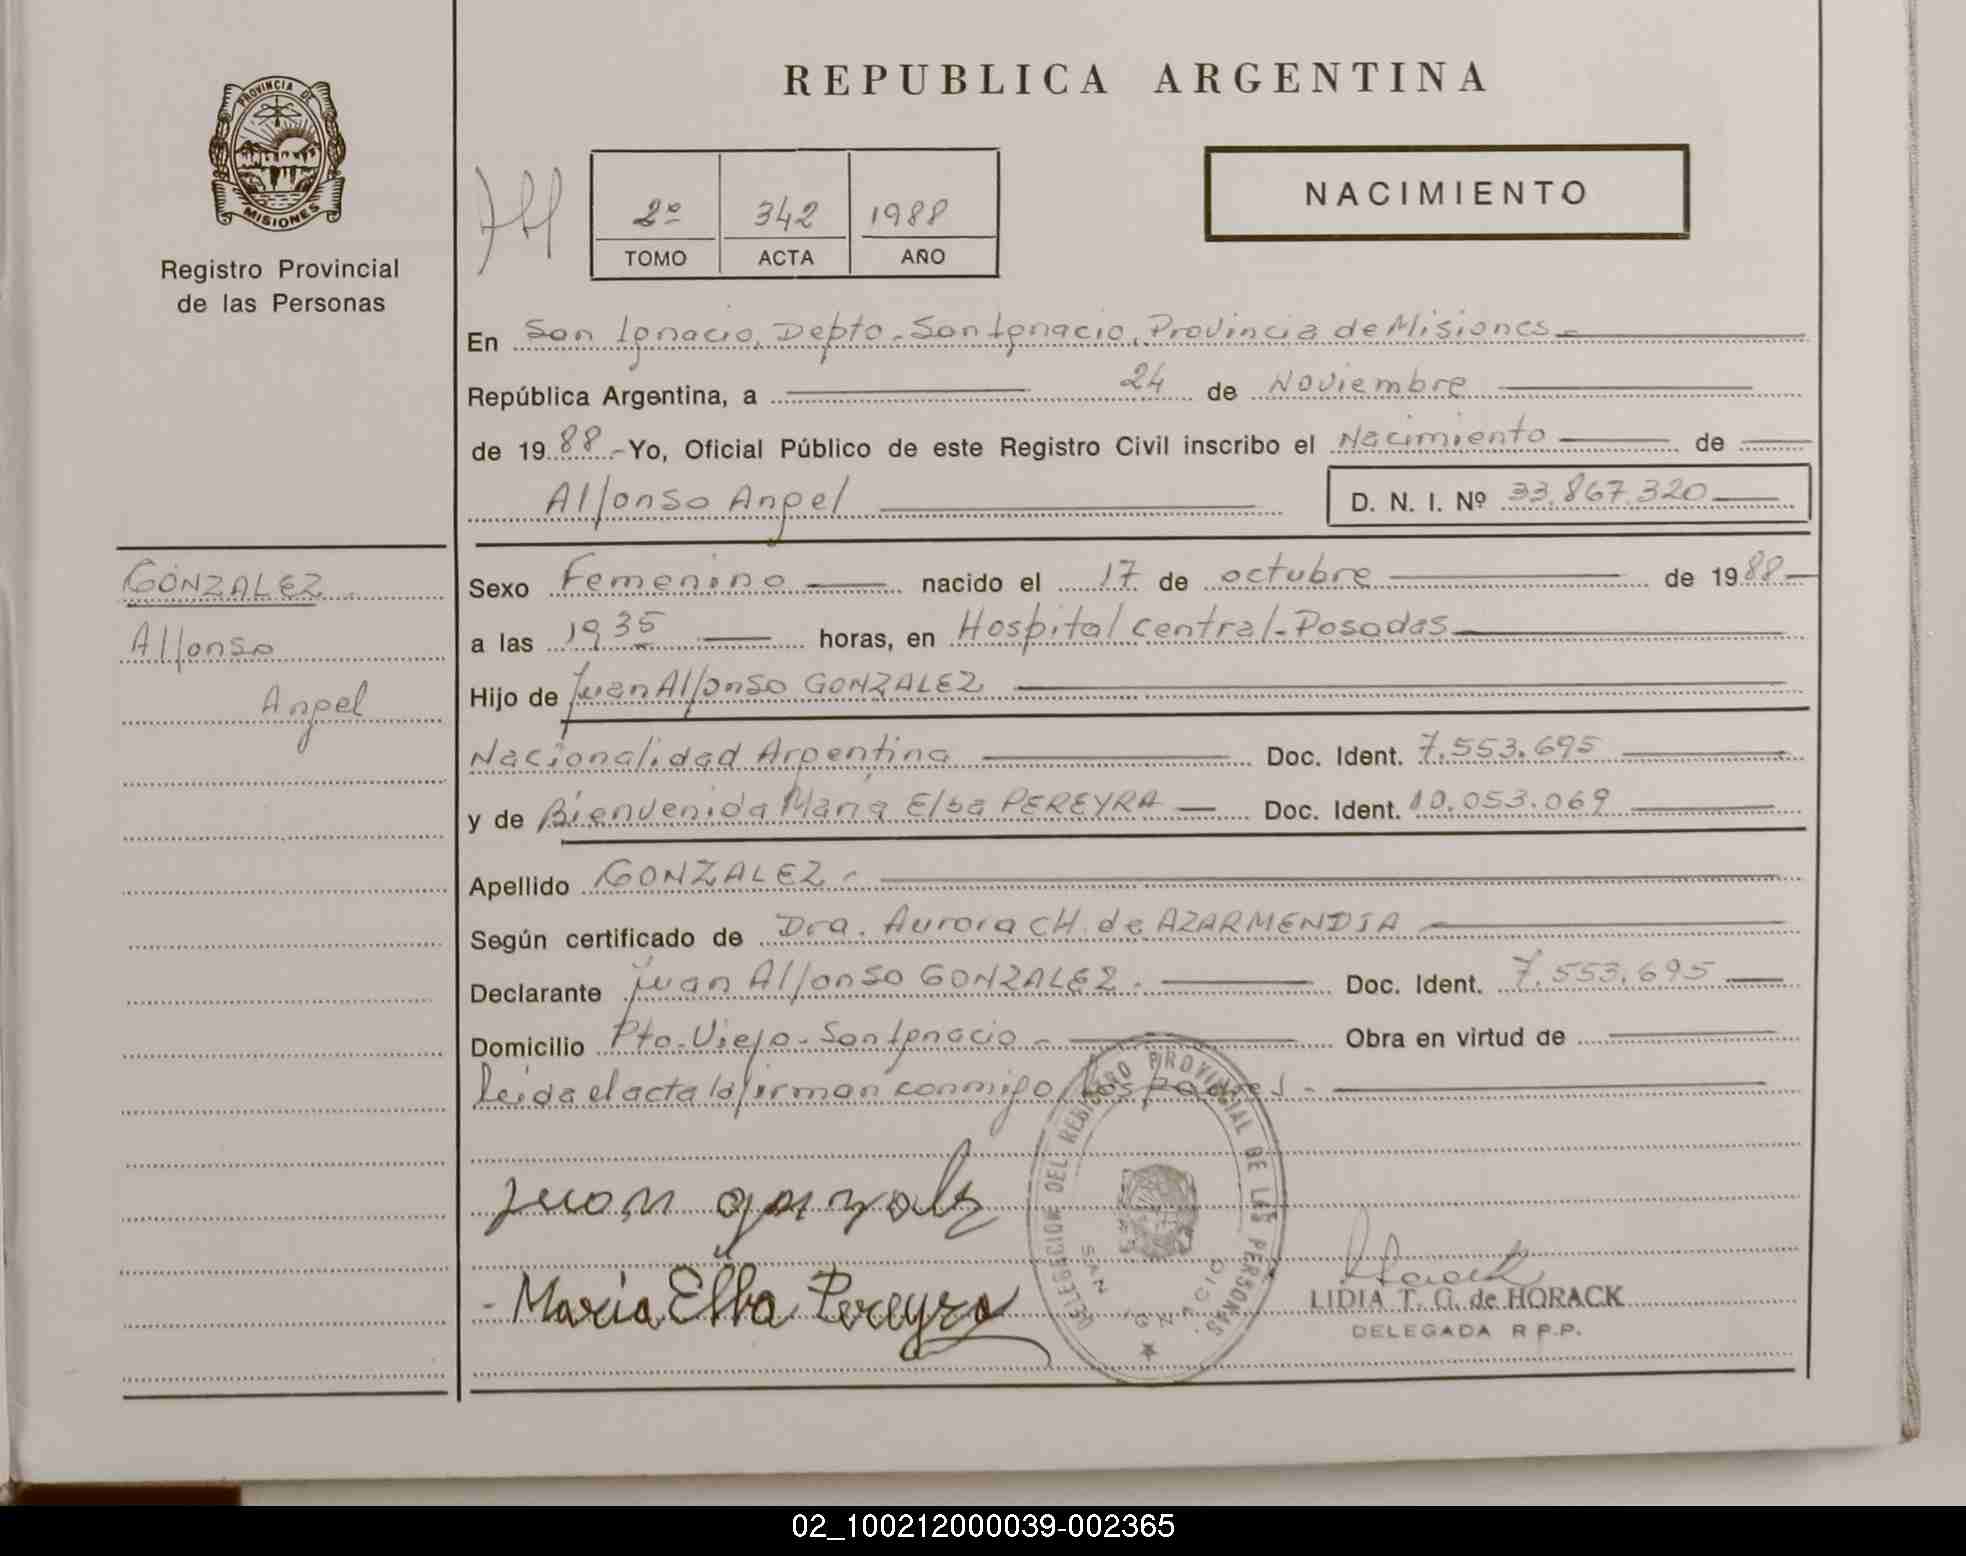 REPUBLICA ARGENTINA
PROVINCIA DE
MISIONES
Registro Provincial
de las Personas
2º 342 1988
TOMO ACTA AÑO
NACIMIENTO
En San Ignacio, Depto. San Ignacio, Provincia de Misiones
República Argentina, a 24 de Noviembre
de 1988 - Yo, Oficial Público de este Registro Civil inscribo el Nacimiento de
Alfonso Angel D. N. I. Nº 33.867.320
GONZALEZ
Alfonso
Angel
Sexo Femenino nacido el 17 de octubre de 1988
a las 1935 horas, en Hospital Central - Posadas
Hijo de Juan Alfonso GONZALEZ
Nacionalidad Argentina Doc. Ident. 7.553.695
y de Bienvenida Maria Elba PEREYRA Doc. Ident. 10.053.069
Apellido GONZALEZ -
Según certificado de Dra. Aurora CH. de AZARMENDIA
Declarante Juan Alfonso GONZALEZ. Doc. Ident. 7.553.695
Domicilio Pto. Viejo - San Ignacio - Obra en virtud de
leida el acta la firman conmigo los padres -
juan gonzalez
- Maria Elba Pereyra
DELEGACION DEL REGISTRO PROVINCIAL DE LAS PERSONAS
SAN IGNACIO
Horack
LIDIA T. G. de HORACK
DELEGADA R P.P.
02_100212000039-002365